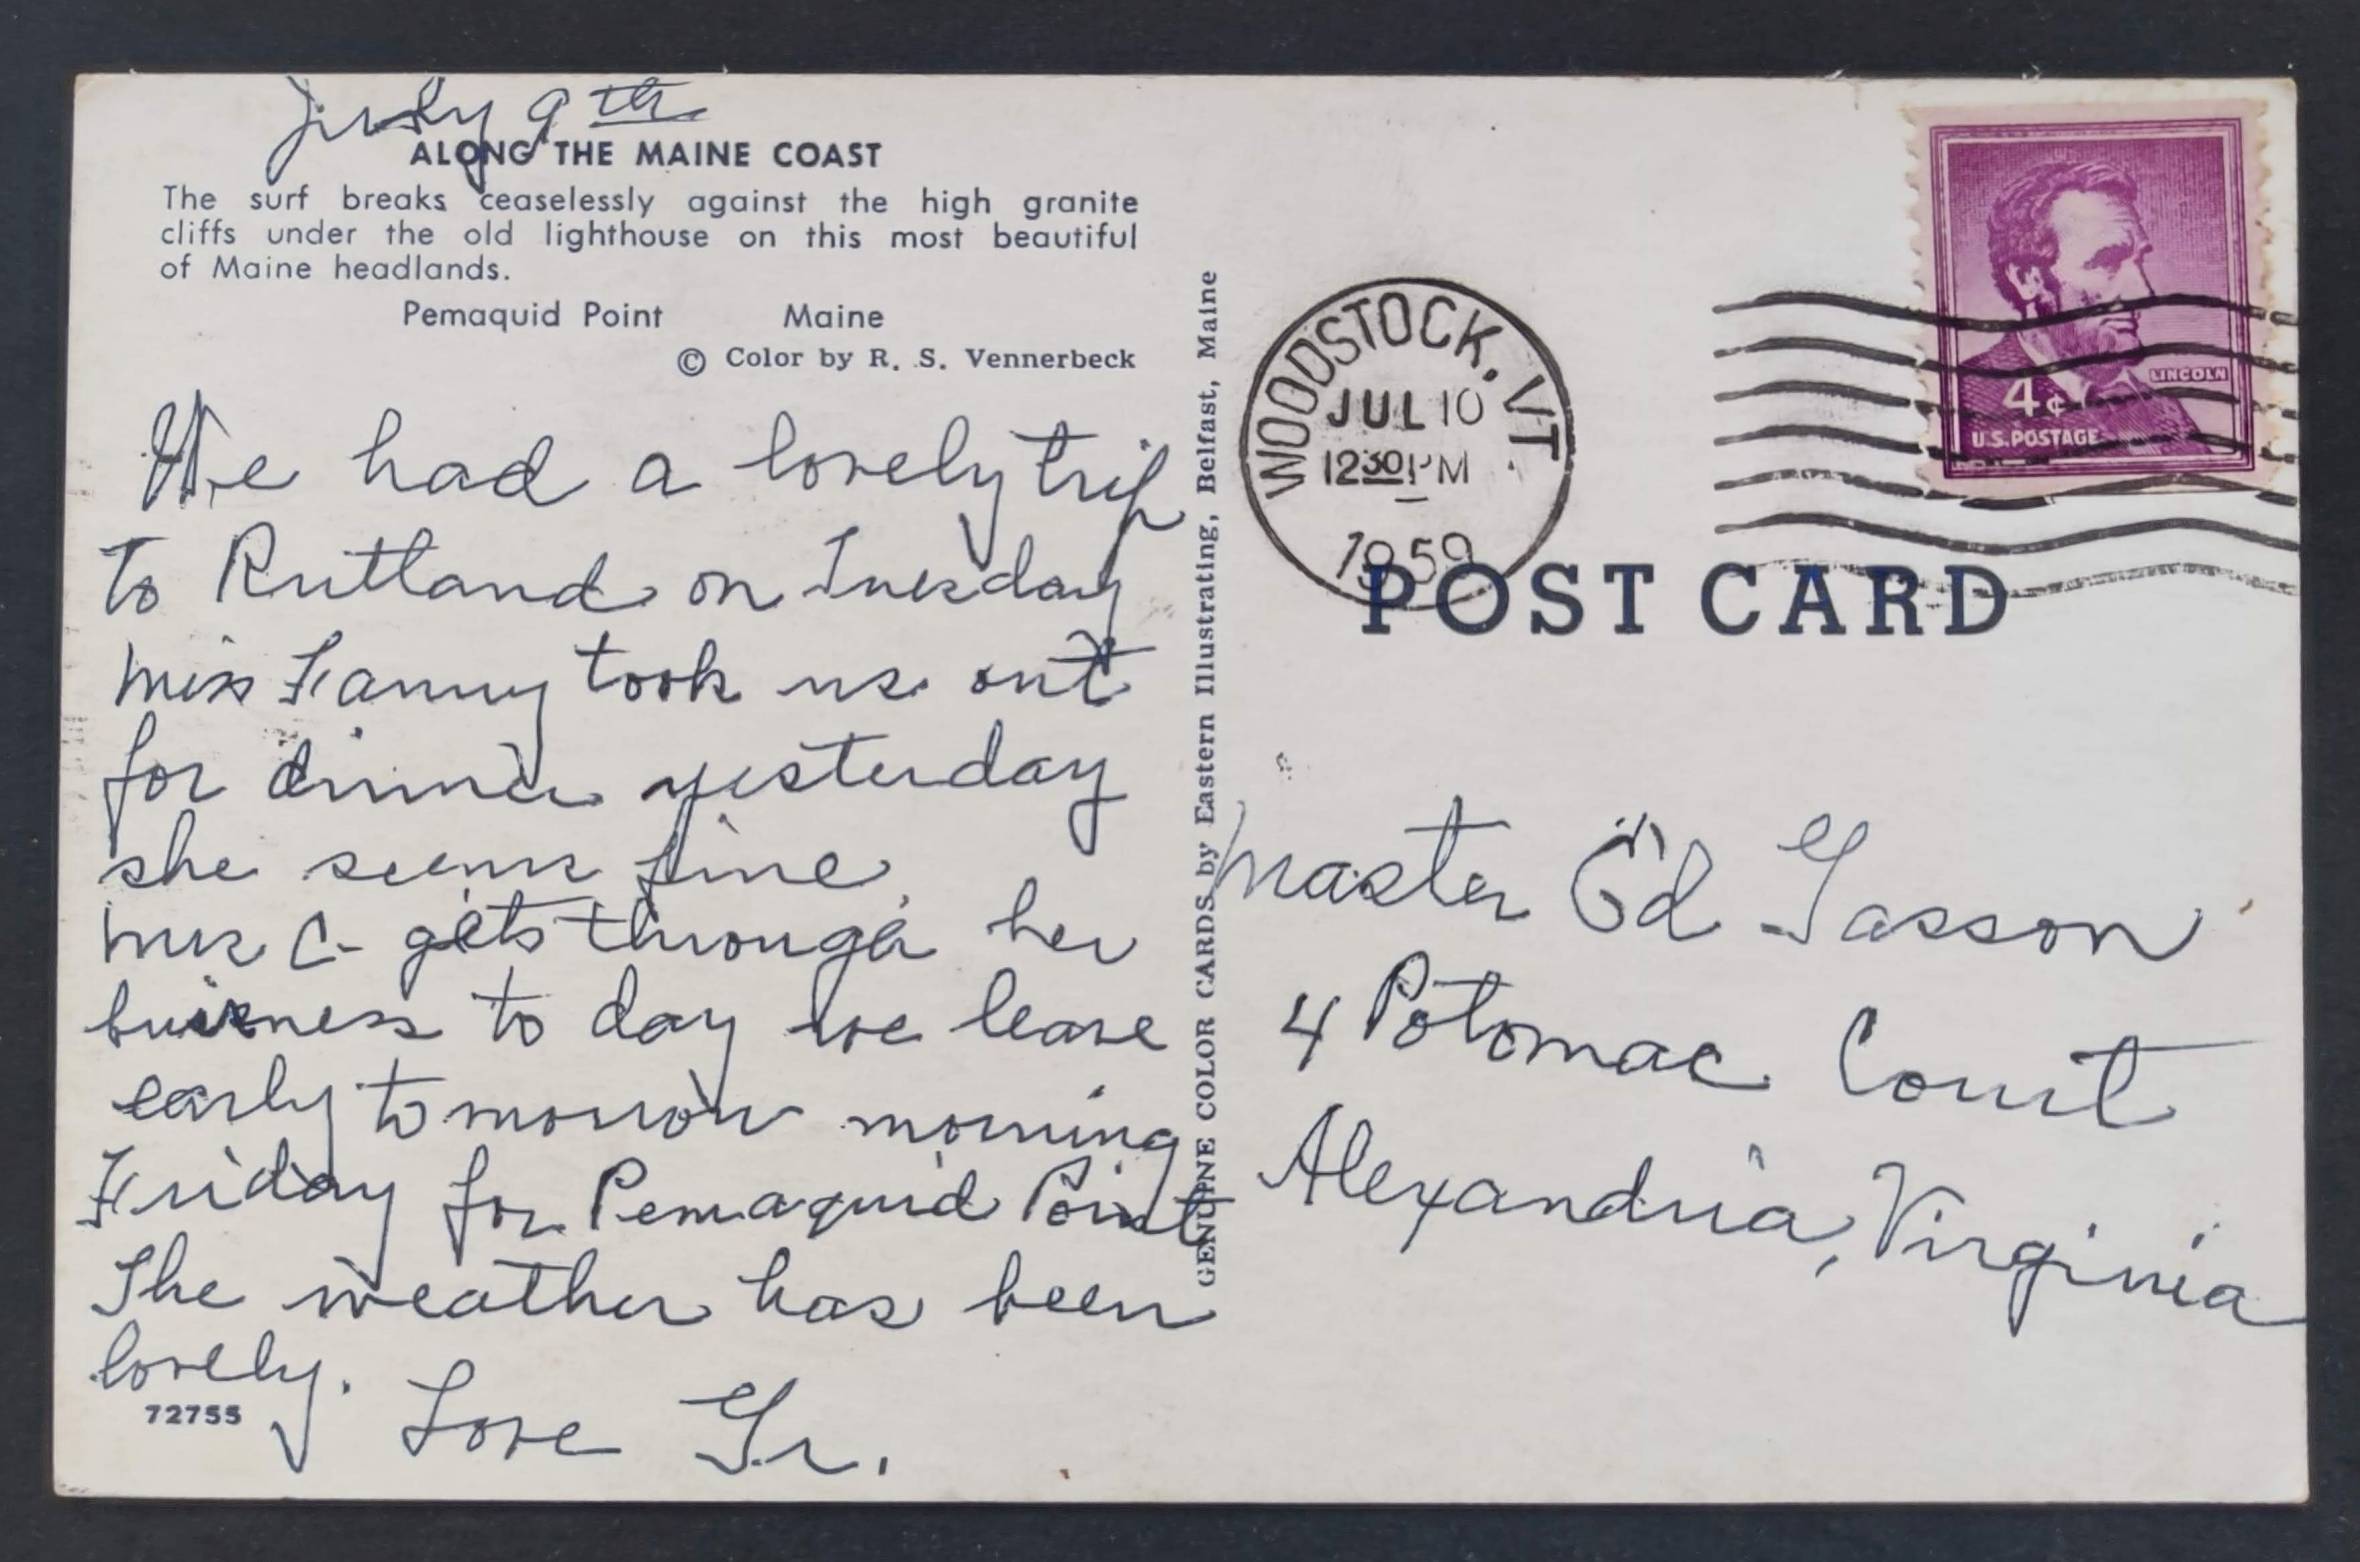 July 9th
ALONG THE MAINE COAST
The surf breaks ceaselessly against the high granite
cliffs under the old lighthouse on this most beautiful
of Maine headlands.
Pemaquid Point Maine
© Color by R. S. Vennerbeck
We had a lovely trip
to Rutland on Tuesday
Miss Fanny took us out
for dinner yesterday
she seems fine.
Mrs C- gets through her
buisness to day we leave
early tomorrow morning
Friday for Pemaquid Point
The weather has been
lovely.
72755
Love Gr.
GENUINE COLOR CARDS by Eastern Illustrating, Belfast, Maine
WOODSTOCK, VT
JUL 10
1230 PM
1959
LINCOLN
4¢
U.S. POSTAGE
POST CARD
Master Ed Gasson
4 Potomac Court
Alexandria, Virginia